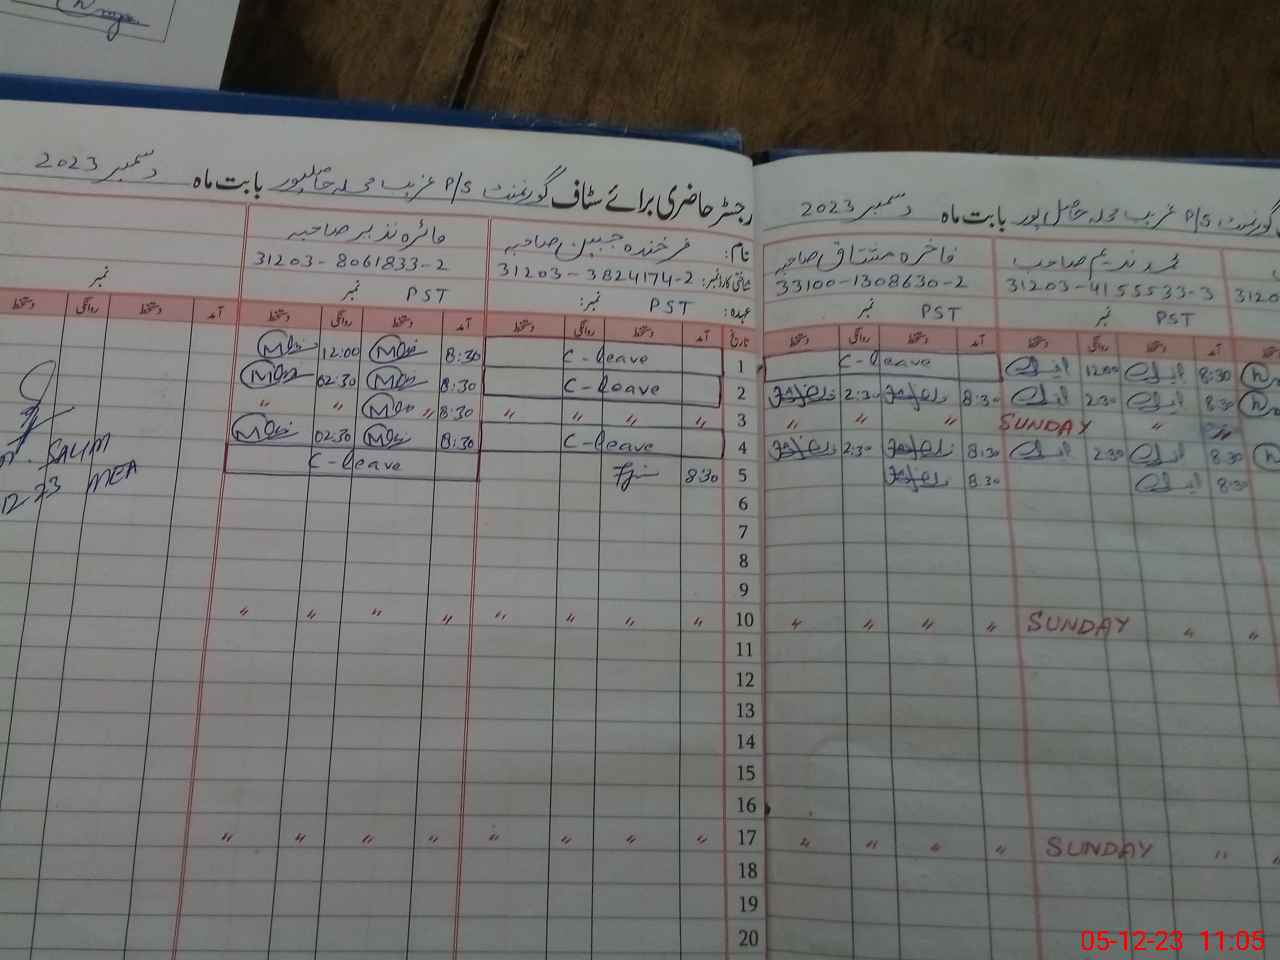 رجسٹر حاضری برائے سٹاف گورنمنٹ P/S غریب محلہ حاصلپور بابت ماہ دسمبر 2023
نام: فرخندہ جبیں صاحبہ
شناختی کارڈ نمبر: 31203-3824174-2
عہدہ: PST نمبر:
مائرہ نذیر صاحبہ
31203-8061833-2
PST نمبر
نمبر
تاریخ آمد دستخط روانگی دستخط آمد دستخط روانگی دستخط آمد دستخط روانگی دستخط
1 C-leave 8:30 12:00
2 C-leave 8:30 02:30
3 " " " " 8:30 " " "
4 C-leave 8:30 02:30
5 8:30 C-leave
6
7
8
9
10 " " " " " " " "
11
12
13
14
15
16
17 " " " " " " " "
18
19
20
SALIM
MEA
P/S غریب محلہ حاصل پور بابت ماہ دسمبر 2023
فاخرہ مشتاق صاحبہ
33100-1308630-2
PST نمبر
ندیم صاحب
31203-4155533-3
PST نمبر
آمد دستخط روانگی دستخط آمد دستخط روانگی دستخط
C-leave 12:00 8:30
2:30 8:30 2:30 8:30
" " " SUNDAY "
2:30 8:30 2:30 8:30
8:30 8:30
" " " " SUNDAY " "
" " " " SUNDAY " "
05-12-23 11:05